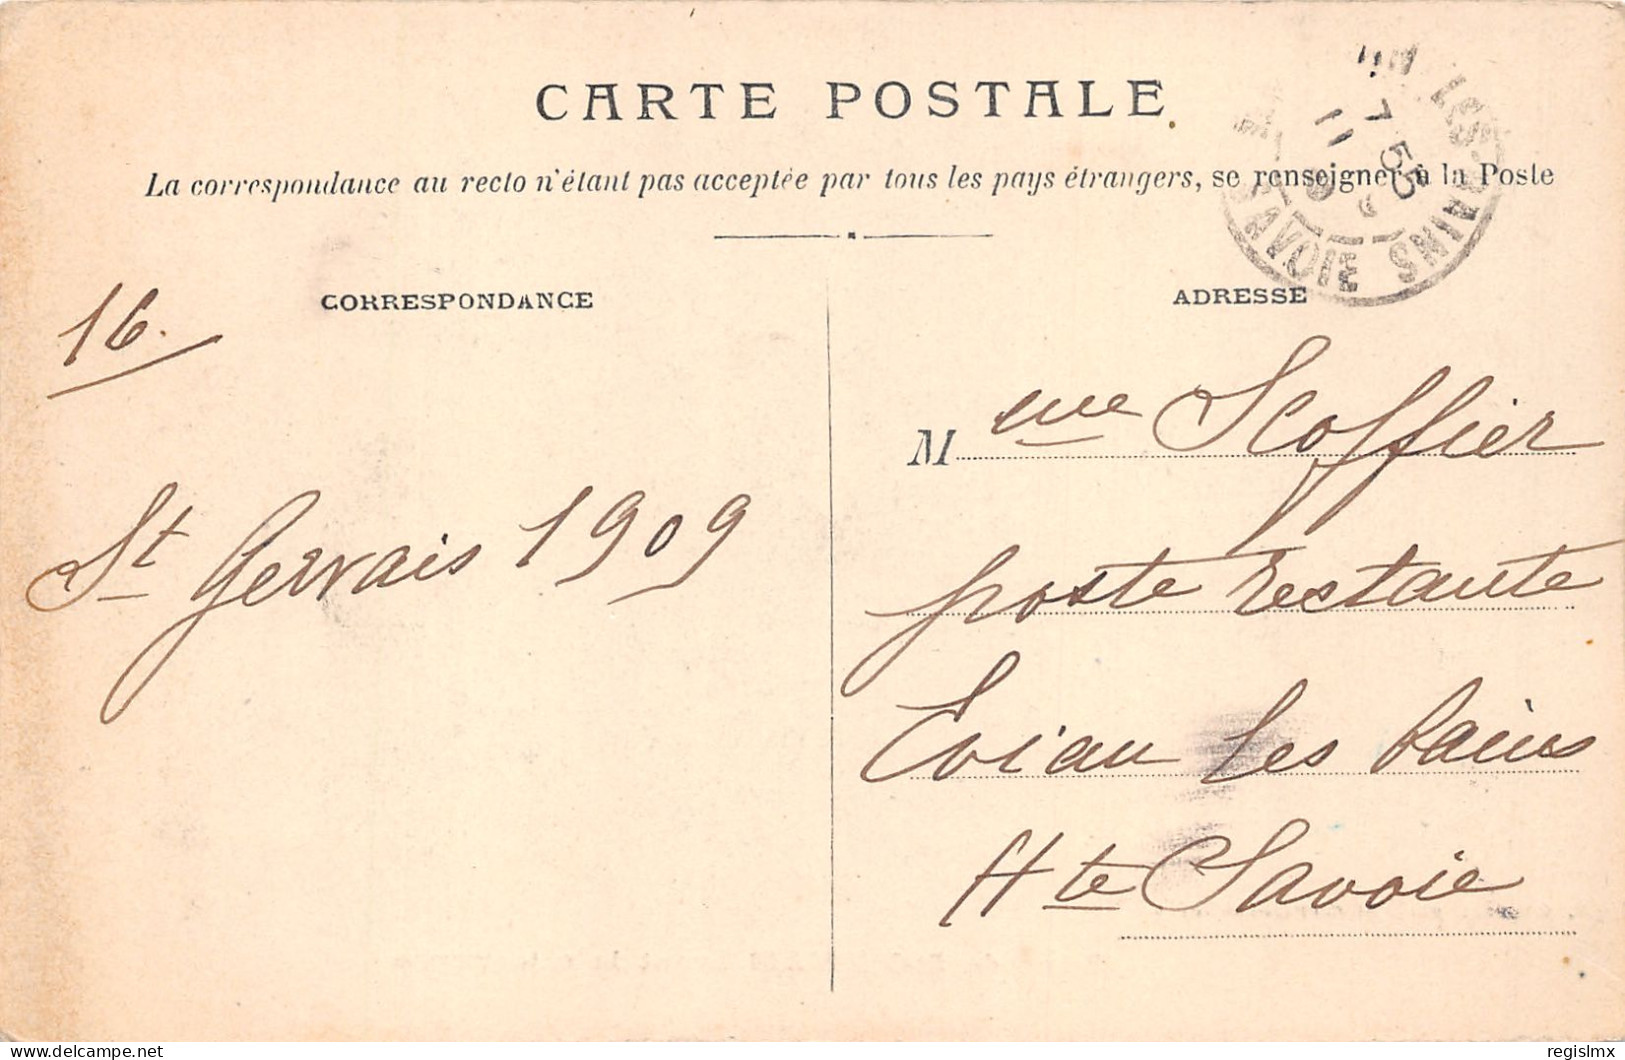 CARTE POSTALE
La correspondance au recto n'étant pas acceptée par tous les pays étrangers, se renseigner à la Poste
CORRESPONDANCE
ADRESSE
16.
St Gervais 1909
M me Scoffier
poste restante
Evian les bains
Hte Savoie
LES-BAINS
SAVOIE
7 55
11
delcampe.net
regislmx